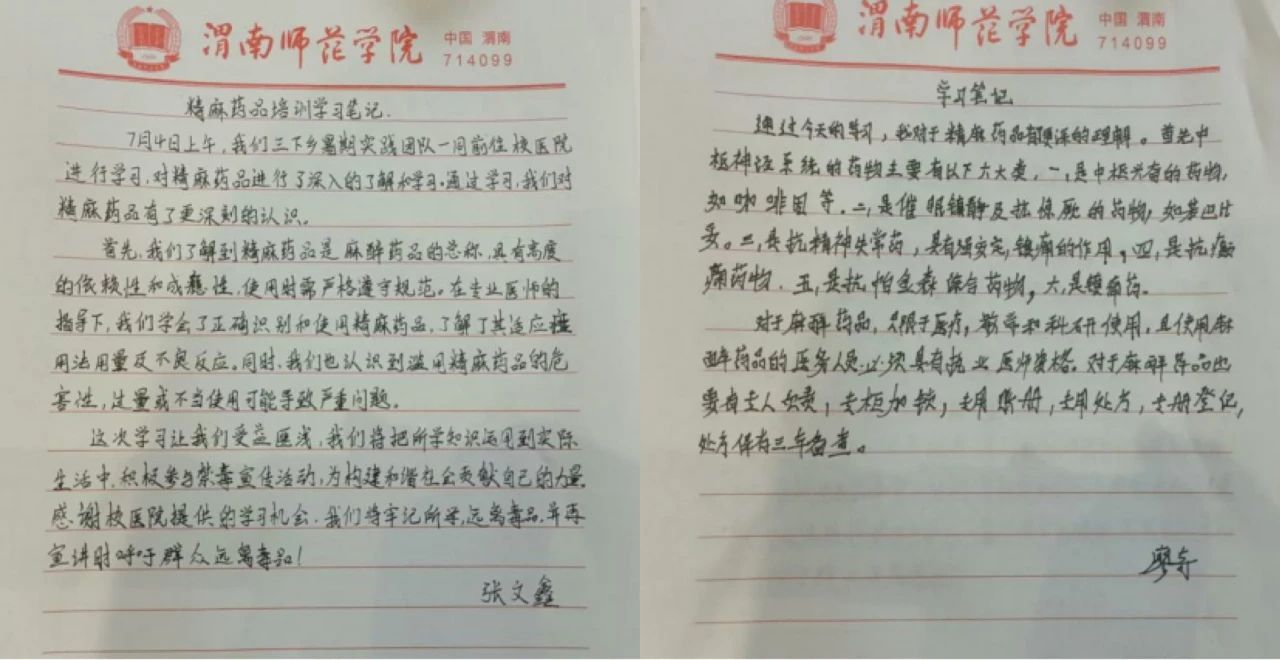 渭南师范学院
中国 渭南
714099
精麻药品培训学习笔记.
7月4日上午,我们三下乡暑期实践团队一同前往校医院
进行学习,对精麻药品进行了深入的了解和学习。通过学习,我们对
精麻药品有了更深刻的认识。
首先,我们了解到精麻药品是麻醉药品的总称,具有高度
的依赖性和成瘾性,使用时需严格遵守规范。在专业医师的
指导下,我们学会了正确识别和使用精麻药品,了解了其适应症
用法用量及不良反应。同时,我们也认识到滥用精麻药品的危
害性,过量或不当使用可能导致严重问题。
这次学习让我们受益匪浅,我们将把所学知识运用到实际
生活中,积极参与禁毒宣传活动,为构建和谐社会贡献自己的力量.
感谢校医院提供的学习机会.我们将牢记所学,远离毒品,并再
宣讲时呼吁群众远离毒品!
张文鑫
渭南师范学院
中国 渭南
714099
学习笔记
通过今天的学习,我对于精麻药品有更深的理解。首先中
枢神经系统的药物主要有以下六大类,一,是中枢兴奋的药物,
如咖啡因等.二,是催眠镇静及抗惊厥的药物,如苯巴比
妥。三,是抗精神失常药,具有强安定,镇痛的作用,四,是抗癫
痫药物.五,是抗帕金森综合药物,六,是镇痛药.
对于麻醉药品,只限于医疗,教学和科研使用,且使用麻
醉药品的医务人员必须具有执业医师资格.对于麻醉药品也
要有专人负责,专柜加锁,专用账册,专用处方,专册登记,
处方保存三年备查。
廖